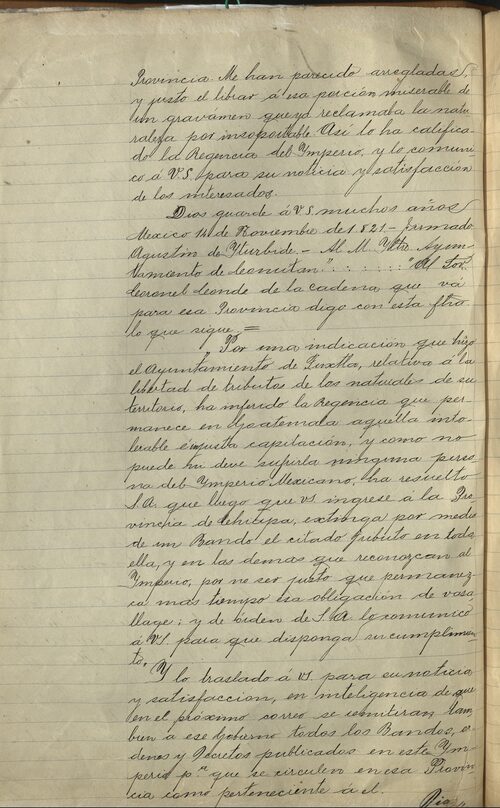 Provincia. Me han parecido arregladas,
y justo el librar á esa porcion miserable de
un gravamen que ya reclamaba la natu-
raleza por insoportable. Asi lo ha califica-
do la Regencia del Ymperio, y lo comuni-
co á V.S. para su noticia y satisfacción
de los interesados.
Dios guarde á V.S. muchos años
Mexico 14 de Noviembre de 1821.- Firmado
Agustin de Yturbide.- Al M. Yltre. Ayun-
tamiento de Comitan". : . . . . : "Al Sor.
Coronel Conde de la Cadena, que va
para esa Provincia digo con esta fha
lo que sigue =
Por una indicacion que hizo
el Ayuntamiento de Tuxtla, relativa á la
libertad de tributos de los naturales de su
territorio, ha inferido la Regencia que per-
manece en Guatemala aquella into-
lerable é injusta capitación, y como no
puede ni deve sufrirla ninguna perso-
na del Ymperio Mexicano, ha resuelto
S.A. que luego que VS. ingrese á la Pro-
vincia de Chiapa, extinga por medio
de un Bando el citado tributo en toda
ella, y en las demas que reconozcan al
Ymperio, por no ser justo que permanez-
ca mas tiempo esa obligacion de vasa
llage; y de orden de S.A. lo comunico
á VS. para que disponga su cumplimien-
to.
Y lo traslado á VS. para su noticia
y satisfaccion, en inteligencia de que
en el próximo correo se remitiran tam-
bien á ese Gobierno todos los Bandos, or
denes y Decretos publicados en este Ym-
perio p.ª que se circulen en esa Provin-
cia como perteneciente á el.
Dio